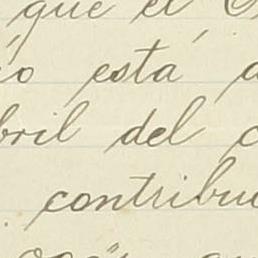 que el
está
bril del
contribu